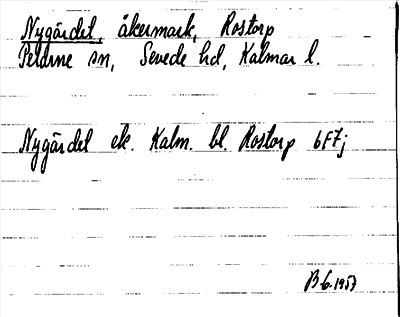 Nygärdel, åkermark, Rostorp
Pelarne sn, Sevede hd, Kalmar l.
Nygärdel ek. Kalm. bl. Rostorp 6F7j
1957